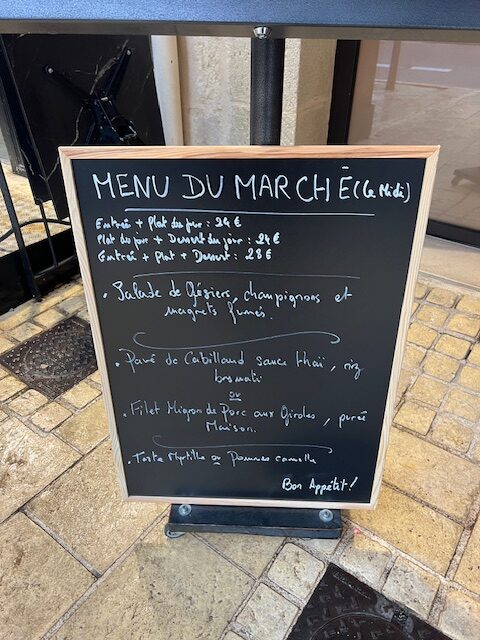 MENU DU MARCHÉ (Le Midi)
Entrée + Plat du jour : 24 €
Plat du jour + Dessert du jour : 24 €
Entrée + Plat + Dessert : 28 €
• Salade de Gésiers, champignons et
magrets fumés.
• Pavé de Cabillaud sauce thaï, riz
basmati
ou
• Filet Mignon de Porc aux Girolles, purée
Maison.
• Tarte Myrtille ou Pommes cannelle
Bon Appétit !